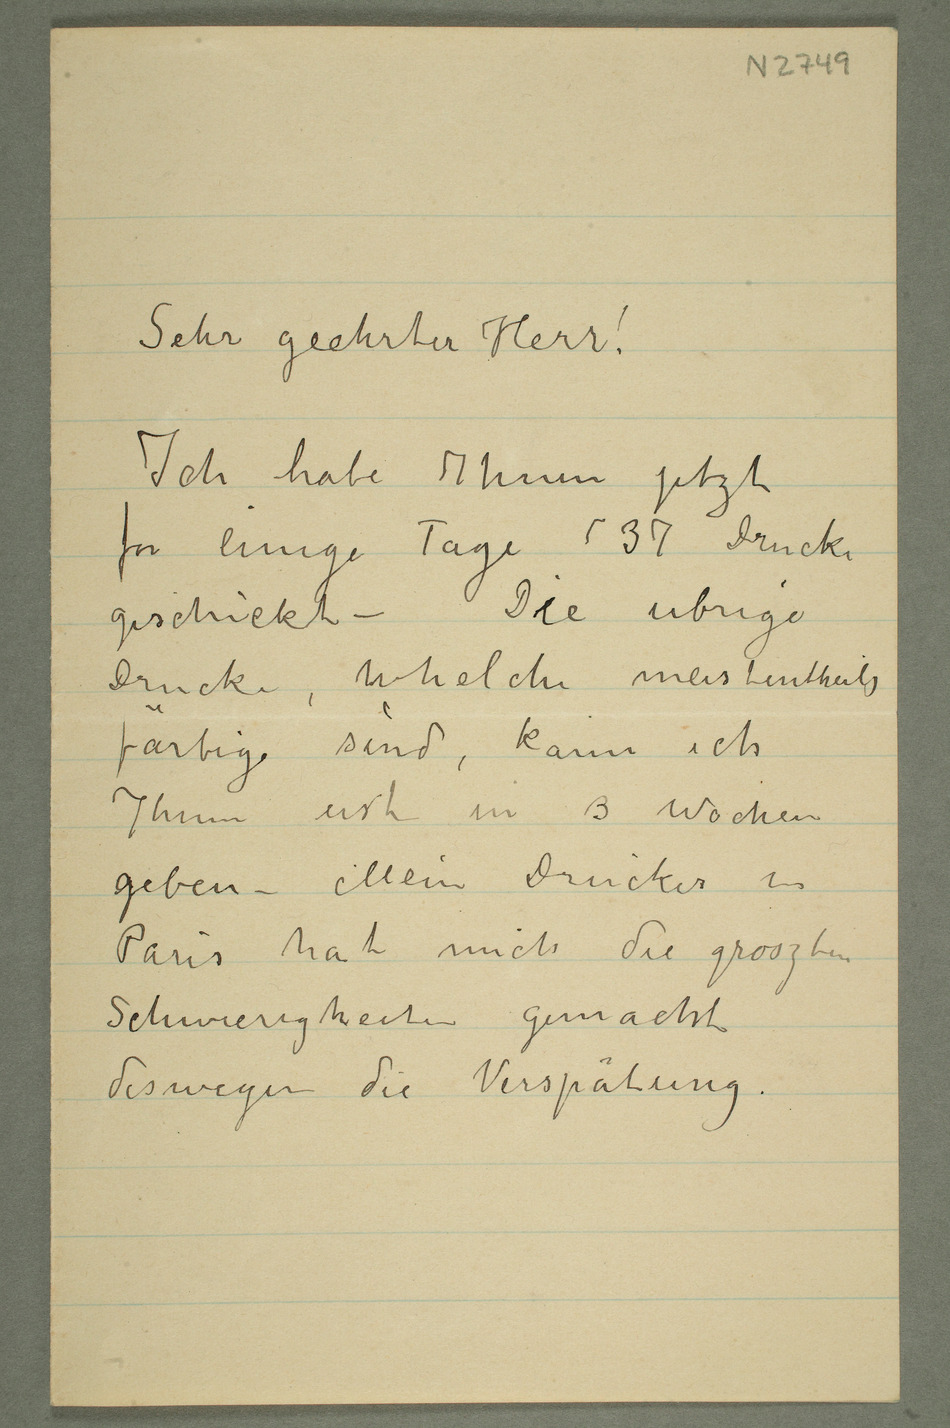 N 2749
Sehr geehrter Herr!
Ich habe Ihnen jetzt
for einige Tage 137 Drucke
geschickt – Die ubrige
Drucke, whelche meistentheils
färbige sind, kann ich
Ihnen erst in 3 Wochen
geben – Mein Drucker in
Paris hat mich die groszten
Schwierigkeiten gemacht
deswegen die Verspätung.